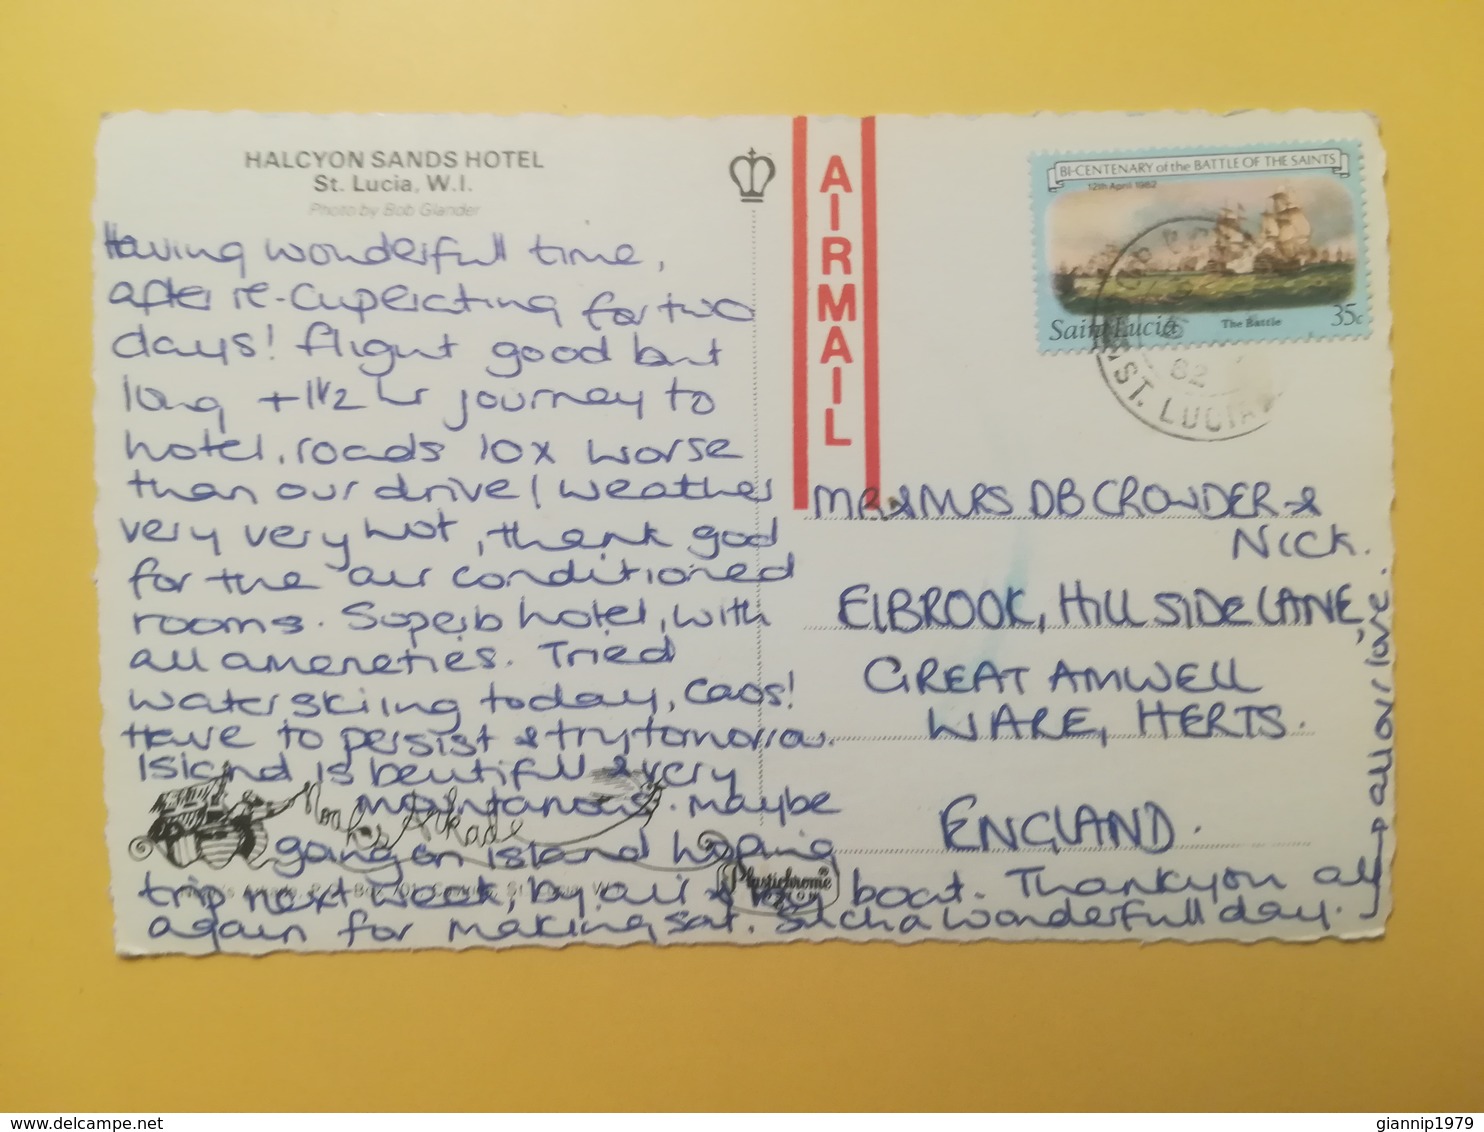 HALCYON SANDS HOTEL
St. Lucia, W.I.
Photo by Bob Glander
Having wonderfull time,
after re-cuperating for two
days! flight good but
long + 1 1/2 hr journey to
hotel, roads 10x worse
than our drive! weather
very very hot, thank god
for the air conditioned
rooms. Superb hotel, with
all ameneties. Tried
waterskiing today, Caos!
Have to persist & try tomorrow.
Island is beutifull & very
mountanous. maybe
going on island hopping
trip next week, by air & by boat. Thankyou all
again for making sat. Such a wonderfull day.
→ all our love.
Noah's Arkade
Plastichrome
AIRMAIL
BI-CENTENARY of the BATTLE OF THE SAINTS
12th April 1982
Saint Lucia
The Battle
35c
82
ST. LUCIA
MR & MRS DB CROWDER &
NICK.
ELBROOK, HILLSIDE LANE,
GREAT AMWELL
WARE, HERTS.
ENGLAND.
www.delcampe.net
giannip1979